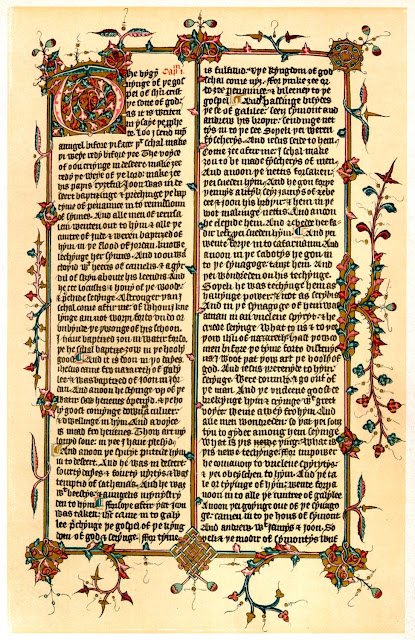 The bygyn Capm 1m
nynge of þe gos
pel of ihu crist
þe sone of god:
as it is writen
in ysaye prophe
te. Loo j send myn
aungel bifore þi face þt schal make
þi weye redy bifore þee. The voyce
of oon cryinge in desert: make ȝee
redy þe weye of þe lord: make ȝee
his paþis ryȝtful & Joon was in de
sert baptisynge & prechynge þe bap
tym of penaunce in to remissioun
of synnes. And alle men of ierusa
lem wenten out to hym & alle þe
cuntre of jude & weren baptised of
hym in þe flood of jordan: knowle
chynge her synnes. And joon was
cloþid wt heeris of camelis & a gyr
dil of skyn aboute his leendis: And
he eet locustis & hony of þe wode:
& prechide seyinge. A stronger þan j
schal come after me: of whom j kne
lynge am not worþi forto vndo or
vnbynde þe þwonge of his schoon.
J haue baptised ȝou in water: forso
þe he schal baptise ȝow in þe hooly
goost. And it is don in þo dayes
ihesus came fro nazareth of galy
lee & was baptised of Joon in jor
dan. And anoon he steyinge vp of þe
water: saw heuenes openyd & þe hol
y goost comynge doun as a culuer:
& dwellinge in hym. And a voys
is maad fro heuenes: Thou art my
loued sone: in þee j haue plesid.
And anoon þe spirit puttide hym
in to desert. And he was in desert
fourty dayes & fourty nyȝtis & was
temptid of sathanas: And he was
wt beestis & aungelis mynystri
den to hym. Forsoþe after þat Joon
was taken: ihc came in to galy
lee prechynge þe gospel of þe kyng
dom of god & seyinge. For tyme
is fulfillid & þe kyngdom of god
schal come nyȝ: forþinke ȝee or
do ȝee penaunce & bileeue ȝe to þe
gospel. And he passinge bisydes
þe se of galilee: seeȝ symont and
andrew his broþer: sendinge net
tis in to þe see Soþeli þei weren
fyscheris. And ihesus seide to hem
Come ȝee after me: j schal make
ȝou to be made fyscheris of men.
And anoon þe nettis forsaken:
þei sueden hym. And he gon forþe
þennes a lytil: seeȝ jamys of zebe
dee & joon his broþer & hem in þe
bot makinge nettis. And anoon
he clepide hem. And zebede her fa
dir left: þei sueden hym. And þei
wente forþe in to cafarnaum. And
anoon in þe sabotis he gon in
to þe synagoge: tauȝt hem. And
þei wondreden on his techynge.
Soþeli he was techynge hem as
hauynge power: & not as scribis
And in þe synagoge of hem was
a man in an vnclene spyryt: & he
criede seyinge What to us & to þee
þou ihu of nazareth: hast þou co
men bifore þe tyme forto distruye
us? J wot þat þou art þe hooli of
god. And ihesus þretenyde to hym:
seyinge Were doumb: & go out of
þe man. And þe vnclene goost de
brekynge hym & cryinge wt greet
voyce wente awey fro hym: And
alle men wondreden: so þat þei souȝ
ten to gydre among hem seyinge
What is þis newe þynge? What is
þis newe techyng? for in power
he comaundiþ to vnclene spyrytis:
& þei obeyschen to hym. And þe ta
le or tyþynge of hym: wente forþ a
noon in to alle þe cuntree of galylee
Anoon þei goynge out of þe synago
ge: camen in to þe hous of symont
And andrew: wt jamys & joon. So
þeli & þe modir of symontis wijf